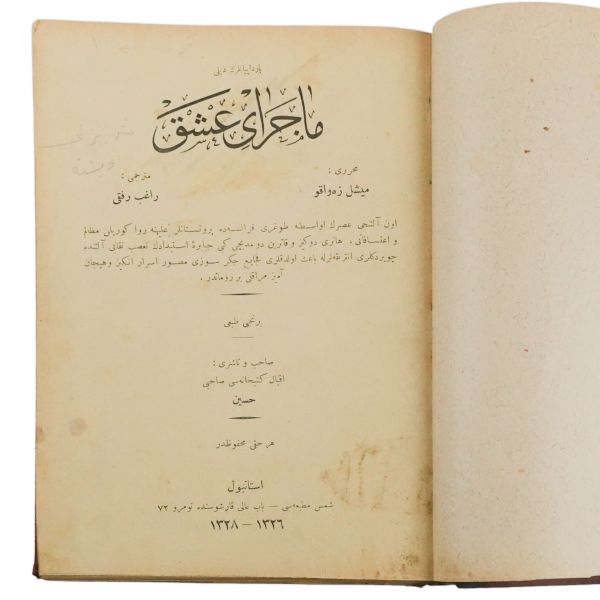 پاردايانلرك ذيلى
ماجراى عشق
محررى :
ميشل زه‌واقو
مترجمى :
راغب رفقى
اون آلتنجى عصرك اواسطنه طوغرى فرانسه‌ده پروتستانلر عليهنه روا كوريلن مظالم
و اعتسافاتى . هانرى دوكيز و قاترين دومديچى كبى جبابرهٔ استبدادك تعصب نقابى آلتنده
چويردكلرى انتريقه‌لرله باعث اولدقلرى فجايع جكر سوزى مصور اسرار انكيز وهيجان
آميز مراقلى بر روماندر .
برنجى طبعى
صاحب و ناشرى :
اقبال كتبخانه‌سى صاحبى
حسين
هر حقى محفوظدر
استانبول
شمس مطبعه‌سى — باب عالى قارشوسنده نومرو ٧٢
١٣٢٦ — ١٣٢٨